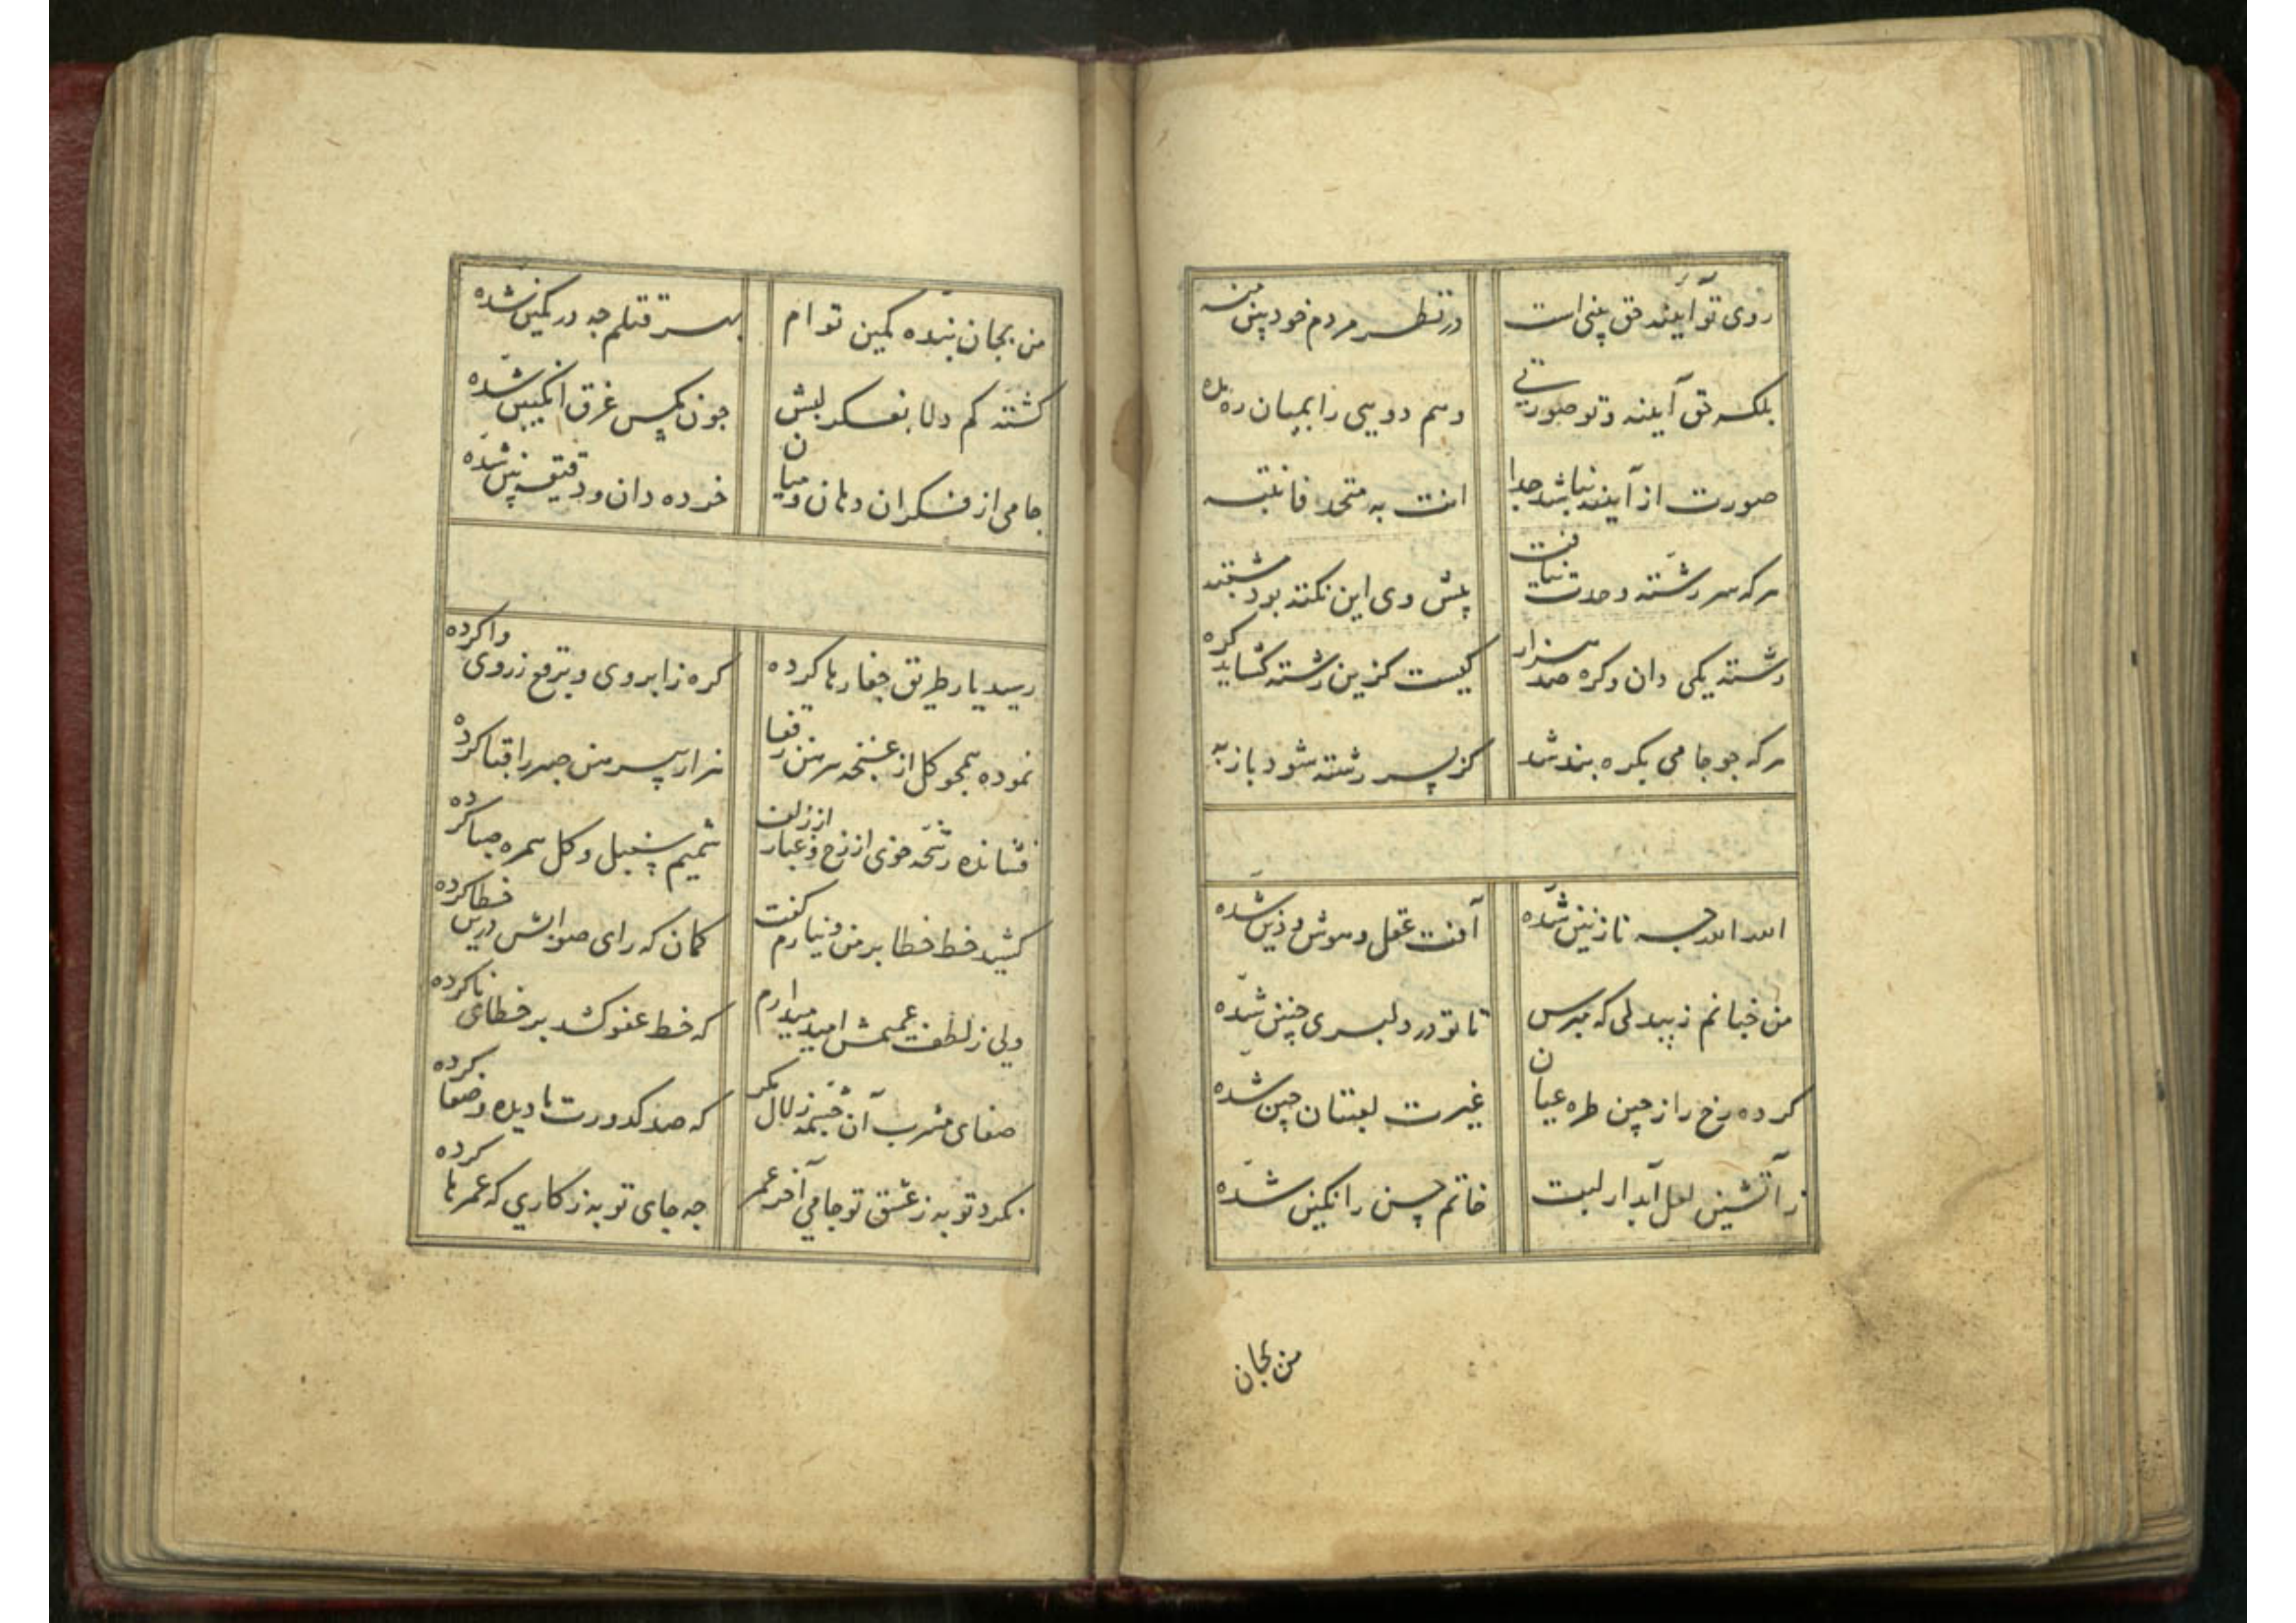 روی تو آیینه حق بینی است
در نظر مردم خود بین منه
بلکه حق آینه و تو صورتی
وهم دویی را بمیان ره مده
صورت از آینه نباشد جدا
انت به متحد فانتبه
هرکه سر رشته وحدت نیافت
پیش وی این نکته بود مشتبه
رشته یکی دان و کره صد هزار
کیست کزین رشته کشاید کره
هرکه جو جامی بکره بند شد
کز بسر رشته شود باز به
الله الله جه نازنین شده
آفت عقل و هوش و دین شده
من جنانم ز بیدلی که مپرس
تا تو در دلبری چنین شده
کرده رخ را ز چین طره عیان
غیرت لعبتان چین شده
ز آتشین لعل آبدار لبت
خاتم حسن را نکین شده
من بجان
من بجان بنده کمین توام
بهر قتلم جه در کمین شده
کشته کم دلا بفکر لبش
جون مکس غرق انکبین شده
جامی از فکر آن دهان و میان
خرده دان و دقیقه بین شده
رسید یار طریق جفا رها کرده
کره ز ابروی و برقع ز روی وا کرده
نموده همجو کل از غنچه پیرهن ز قفا
هزار پیرهن صبر را قبا کرده
فشانده رشحه خوی از رخ و غبار از زلف
شمیم سنبل و کل همره صبا کرده
کشید خط خطا بر من و نیارم کفت
کمان که رای صوابش درین خطا کرده
ولی ز لطف عمیمش امید میدارم
که خط عفو کشد بر خطای ناکرده
صفای مشرب آن چشمه زلال نکر
که صد کدورت ما دیده و صفا کرده
نکرد توبه ز عشق تو جامی آخر عمر
جه جای توبه ز کاری که عمرها کرده